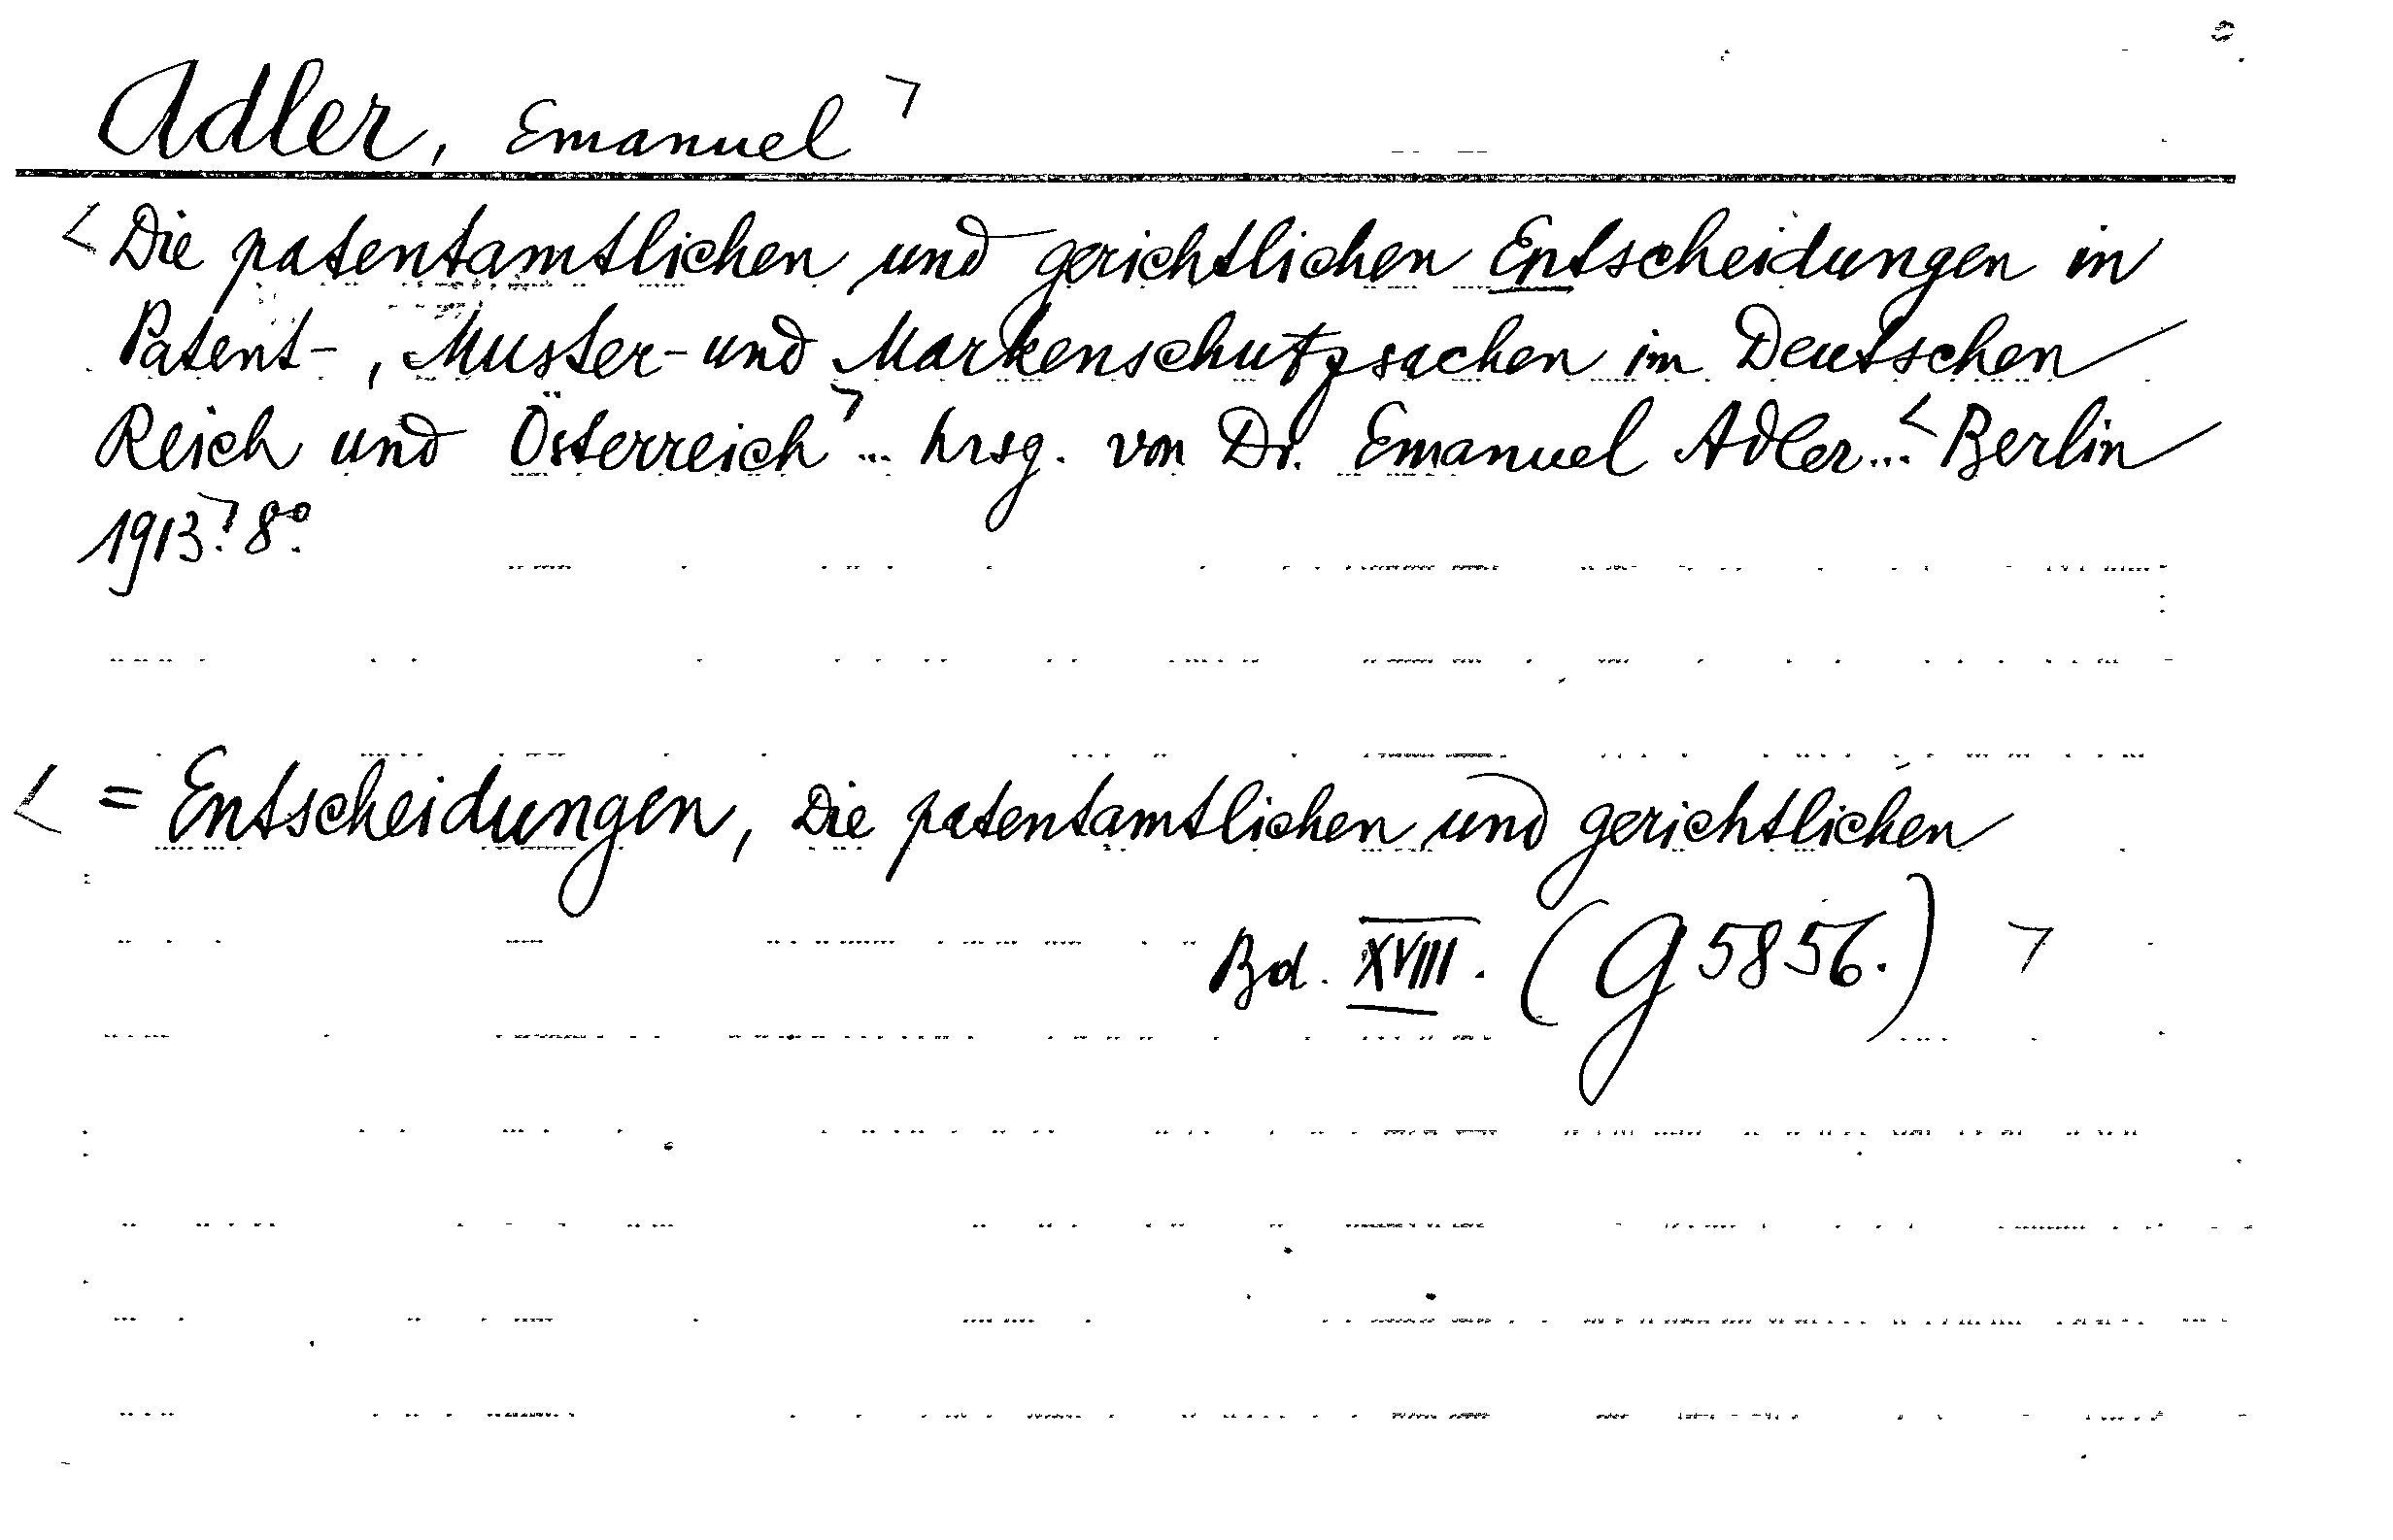 Adler, Emanuel ¬
< Die patentamtlichen und gerichtlichen Entscheidungen in
Patent-, Muster- und Markenschutzsachen im Deutschen
Reich und Österreich ¬ ... hrsg. von Dr. Emanuel Adler... < Berlin
1913 ¬. 8°.
< = Entscheidungen, Die patentamtlichen und gerichtlichen
Bd. XVIII. (G 5856.) ¬